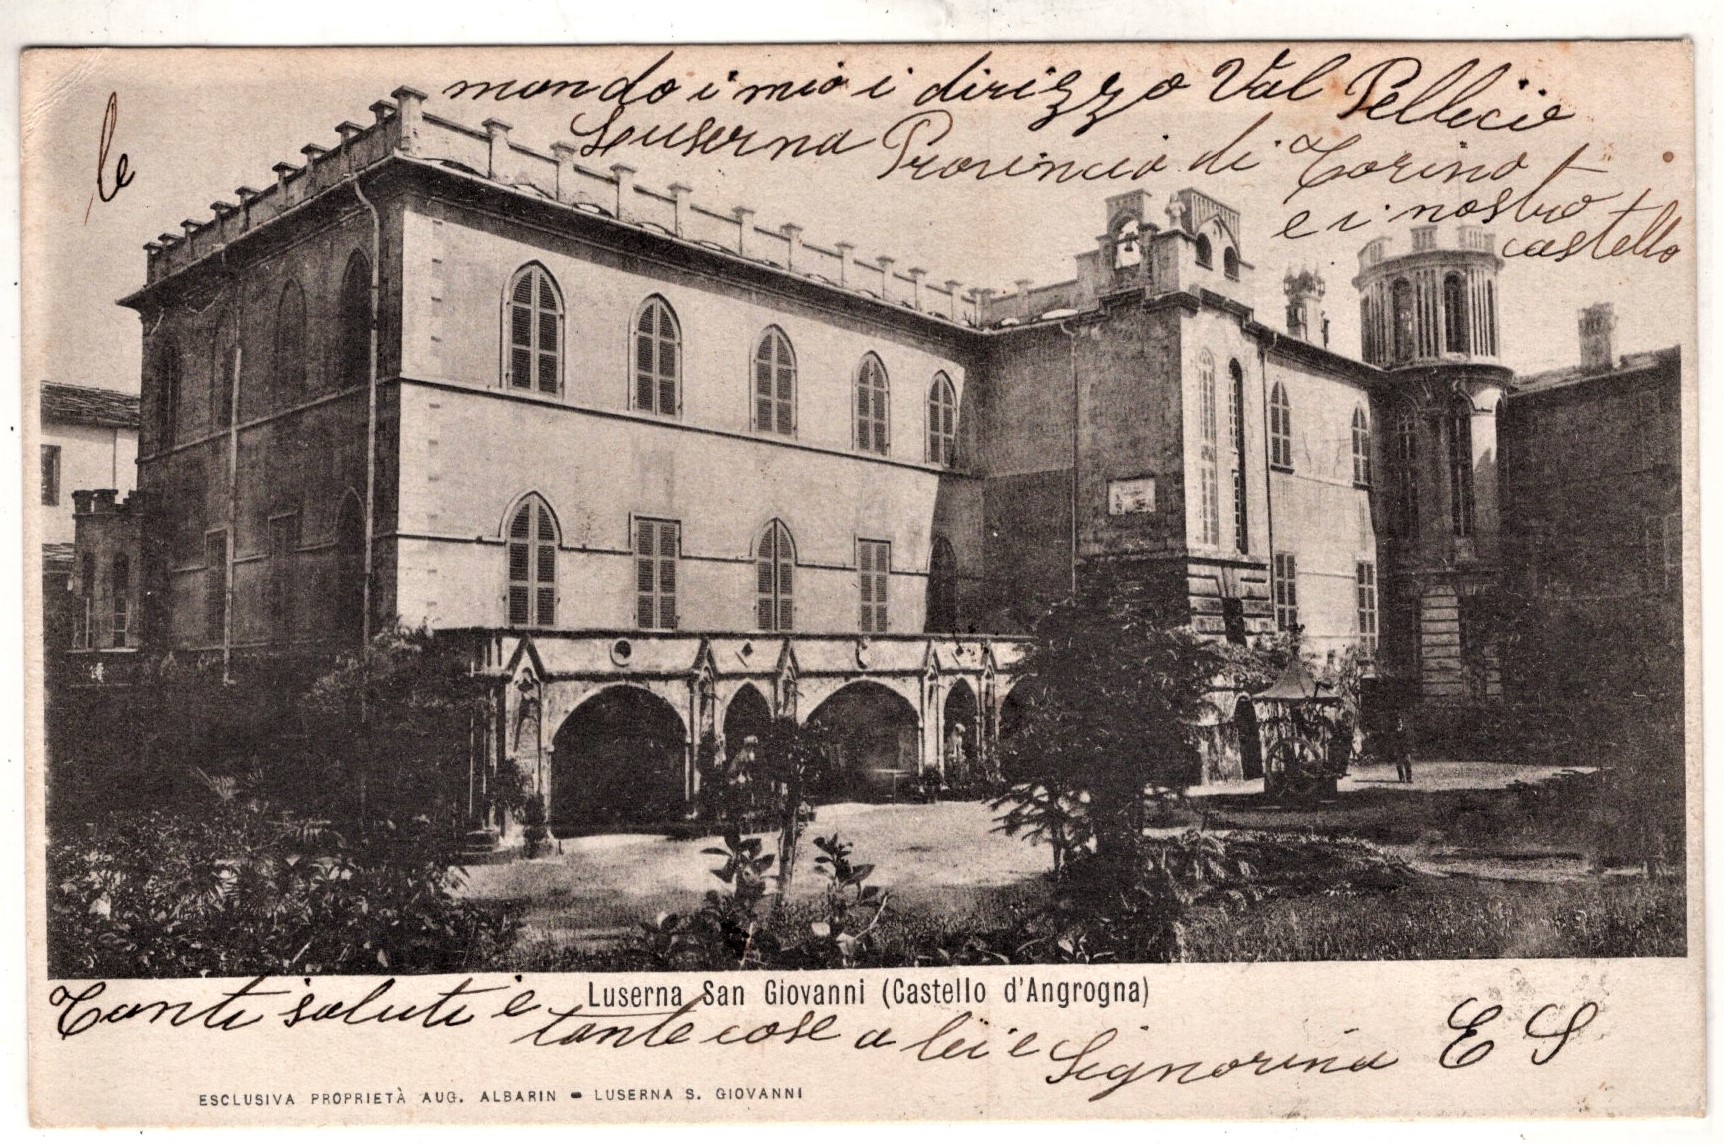 le
mondo i mio i dirizzo Val Pellicie
Luserna Provincia di Torino
e i nostro
castello
Luserna San Giovanni (Castello d'Angrogna)
Tanti saluti e
tante cose a lei e Signorina E S
ESCLUSIVA PROPRIETÀ AUG. ALBARIN - LUSERNA S. GIOVANNI